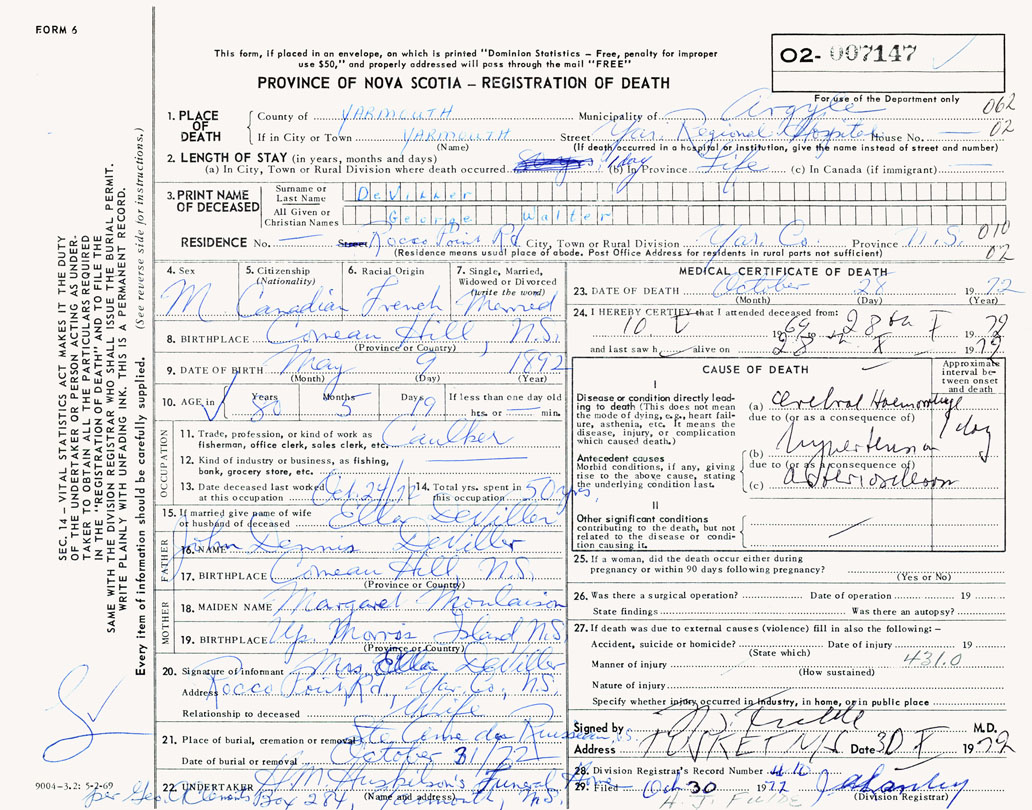 FORM 6
This form, if placed in an envelope, on which is printed "Dominion Statistics – Free, penalty for improper
use $50," and properly addressed will pass through the mail "FREE"
02- 007147
PROVINCE OF NOVA SCOTIA – REGISTRATION OF DEATH
For use of the Department only
062
1. PLACE OF DEATH
County of YARMOUTH Municipality of Argyle
If in City or Town YARMOUTH Street Yar. Regional Hospital House No. — 02
(Name) (If death occurred in a hospital or institution, give the name instead of street and number)
2. LENGTH OF STAY (in years, months and days)
(a) In City, Town or Rural Division where death occurred 1 day (b) In Province Life (c) In Canada (if immigrant) —
3. PRINT NAME OF DECEASED
Surname or Last Name DeViller
All Given or Christian Names George Walter
RESIDENCE No. — Street Rocco Point Rd City, Town or Rural Division Yar. Co. Province N.S. 010
(Residence means usual place of abode. Post Office Address for residents in rural parts not sufficient) 02
4. Sex M
5. Citizenship (Nationality) Canadian
6. Racial Origin French
7. Single, Married, Widowed or Divorced (write the word) Married
8. BIRTHPLACE Comeau Hill, N.S.
(Province or Country)
9. DATE OF BIRTH May 9 1892
(Month) (Day) (Year)
10. AGE in Years 80 Months 5 Days 19 If less than one day old
hrs. or — min.
OCCUPATION
11. Trade, profession, or kind of work as
fisherman, office clerk, sales clerk, etc. Caulker
12. Kind of industry or business, as fishing,
bank, grocery store, etc.
13. Date deceased last worked at this occupation Oct. 24/72
14. Total yrs. spent in this occupation 50 yrs.
15. If married give name of wife
or husband of deceased Ella DeViller
FATHER
16. NAME John Dennis DeViller
17. BIRTHPLACE Comeau Hill N.S.
(Province or Country)
MOTHER
18. MAIDEN NAME Margaret Moulaison
19. BIRTHPLACE Up. Morris Island N.S.
(Province or Country)
20. Signature of informant Mrs. Ella DeViller
Address Rocco Point Rd, Yar. Co., N.S.
Relationship to deceased Wife
21. Place of burial, cremation or removal Ste Anne du Ruisseau, N.S.
Date of burial or removal October 31/72
22. UNDERTAKER H.M. Huskilson's Funeral Home
(Name and address)
per Geo. Box 284, N.S.
9004-3.2: 5-2-69
MEDICAL CERTIFICATE OF DEATH
23. DATE OF DEATH October 28 1972
(Month) (Day) (Year)
24. I HEREBY CERTIFY that I attended deceased from:
10 19 69 to 28th X 19 72
and last saw h alive on 28 X 19 72
CAUSE OF DEATH
Approximate interval between onset and death
I
Disease or condition directly leading to death (This does not mean the mode of dying, e.g., heart failure, asthenia, etc. It means the disease, injury, or complication which caused death.)
(a) Cerebral Haemorrhage 1 day
due to (or as a consequence of)
Antecedent causes
Morbid conditions, if any, giving rise to the above cause, stating the underlying condition last.
(b) hypertension
due to (or as a consequence of)
(c) arteriosclerosis
II
Other significant conditions
contributing to the death, but not related to the disease or condition causing it.
25. If a woman, did the death occur either during
pregnancy or within 90 days following pregnancy?
(Yes or No)
26. Was there a surgical operation? Date of operation 19
State findings Was there an autopsy?
27. If death was due to external causes (violence) fill in also the following: –
Accident, suicide or homicide? Date of injury 19
(State which)
Manner of injury 431.0
(How sustained)
Nature of injury
Specify whether injury occurred in industry, in home, or in public place
Signed by M.D.
Address TUSKET N.S. Date 30 X 1972
28. Division Registrar's Record Number
29. Filed Oct 30 1972
(Division Registrar)
SEC. 14 – VITAL STATISTICS ACT MAKES IT THE DUTY
OF THE UNDERTAKER OR PERSON ACTING AS UNDER-
TAKER TO OBTAIN ALL THE PARTICULARS REQUIRED
IN THE "REGISTRATION OF DEATH" AND TO FILE THE
SAME WITH THE DIVISION REGISTRAR WHO SHALL ISSUE THE BURIAL PERMIT.
WRITE PLAINLY WITH UNFADING INK. THIS IS A PERMANENT RECORD.
Every item of information should be carefully supplied. (See reverse side for instructions.)